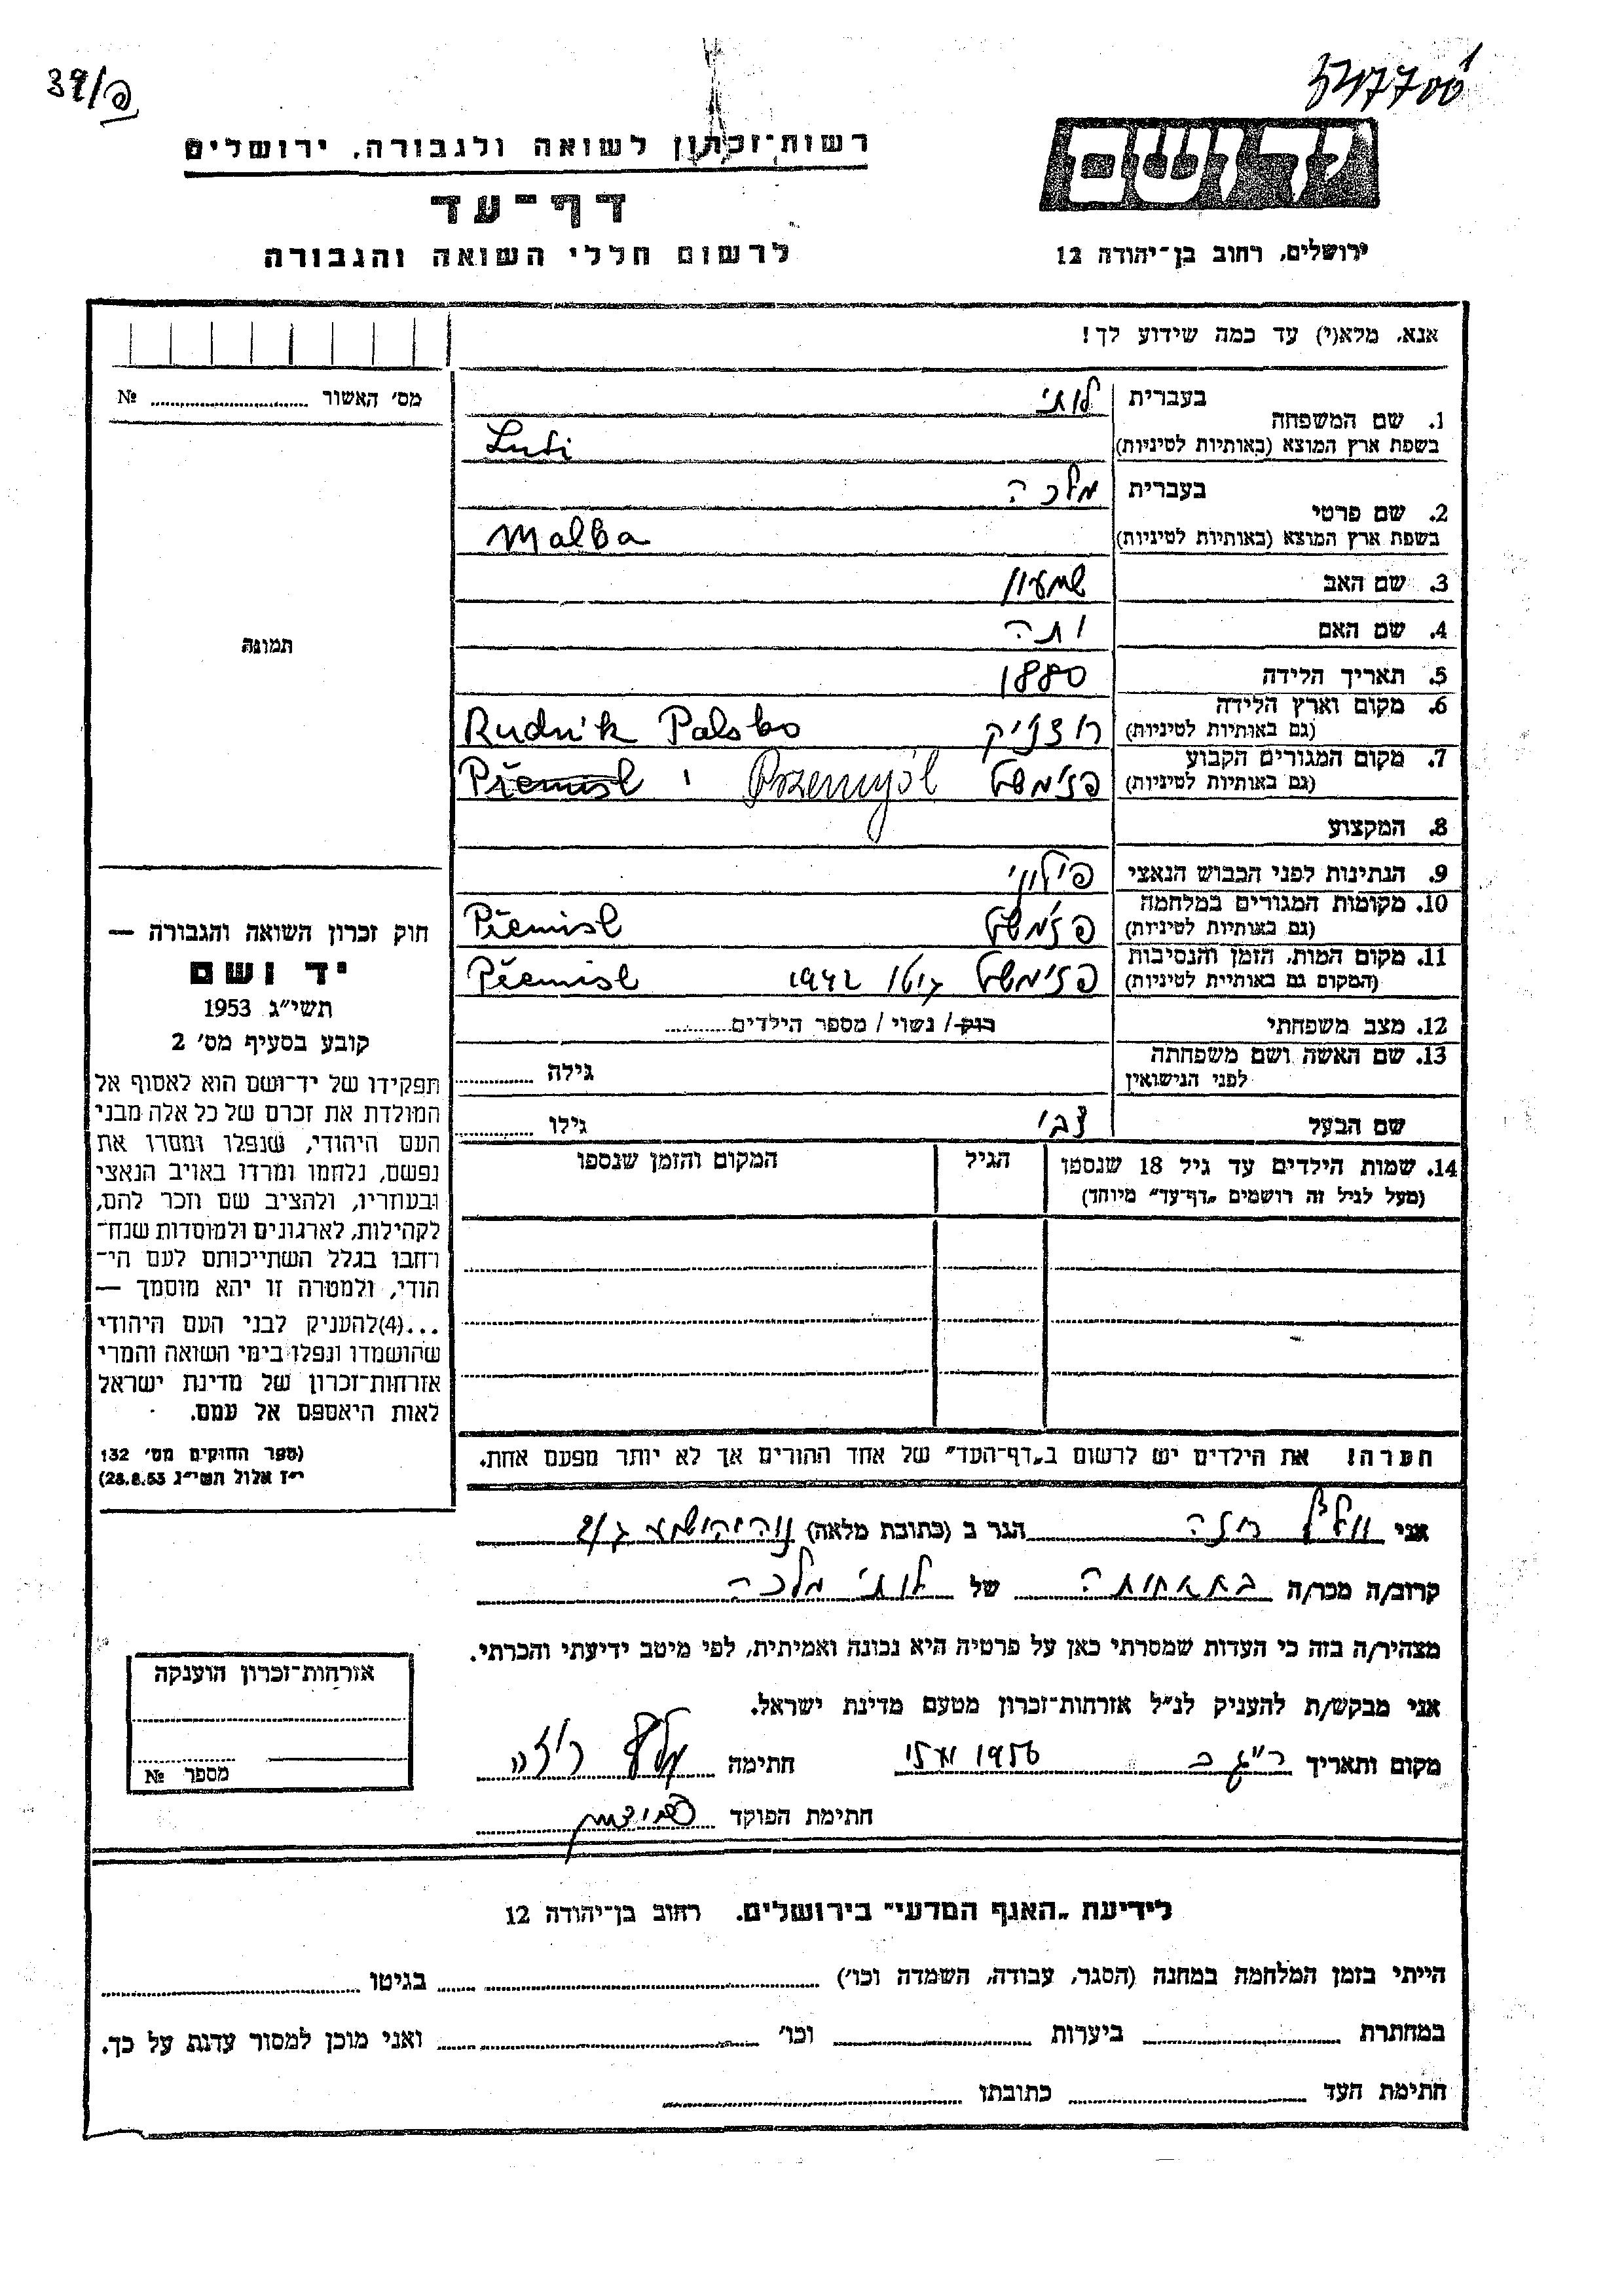 39/פ
347700
רשות־זכרון לשואה ולגבורה, ירושלים
דף־עד
לרשום חללי השואה והגבורה
ידושם
ירושלים, רחוב בן־יהודה 12
אנא, מלא(י) עד כמה שידוע לך!
מס׳ האשור № 
תמונה
1. שם המשפחה
בעברית לותי
בשפת ארץ המוצא (באותיות לטיניות) Luti
2. שם פרטי
בעברית מלכה
בשפת ארץ המוצא (באותיות לטיניות) Malba
3. שם האב שמעון
4. שם האם
5. תאריך הלידה 1880
6. מקום וארץ הלידה רודניק Rudnik Palsko
(גם באותיות לטיניות)
7. מקום המגורים הקבוע פז׳משל Przemyśl Přemisl
(גם באותיות לטיניות)
8. המקצוע
9. הנתינות לפני הכבוש הנאצי פולני
10. מקומות המגורים במלחמה פז׳משל Přemisl
(גם באותיות לטיניות)
11. מקום המות, הזמן והנסיבות פז׳משל גיטו 1942 Přemisl
(המקום גם באותיות לטיניות)
12. מצב משפחתי רוק/ נשוי / מספר הילדים
13. שם האשה ושם משפחתה
לפני הנישואין גילה
שם הבעל צבי גילו
14. שמות הילדים עד גיל 18 שנספו הגיל המקום והזמן שנספו
(מעל לגיל זה רושמים „דף־עד״ מיוחד)
חוק זכרון השואה והגבורה —
יד ושם
תשי״ג 1953
קובע בסעיף מס׳ 2
תפקידו של יד־ושם הוא לאסוף אל
המולדת את זכרם של כל אלה מבני
העם היהודי, שנפלו ומסרו את
נפשם, נלחמו ומרדו באויב הנאצי
ובעוזריו, ולהציב שם וזכר להם,
לקהילות, לארגונים ולמוסדות שנח־
רחבו בגלל השתייכותם לעם הי־
הודי, ולמטרה זו יהא מוסמך —
...(4)להעניק לבני העם היהודי
שהושמדו ונפלו בימי השואה והמרי
אזרחות־זכרון של מדינת ישראל
לאות היאספם אל עמם.
(ספר החוקים מס׳ 132
י״ז אלול תשי״ג 28.8.53)
הערה! את הילדים יש לרשום ב„דף־העד״ של אחד ההורים אך לא יותר מפעם אחת.
אני הגר ב (כתובת מלאה)
קרוב/ה מכר/ה של לותי מלכה
מצהיר/ה בזה כי העדות שמסרתי כאן על פרטיה היא נכונה ואמיתית, לפי מיטב ידיעתי והכרתי.
אני מבקש/ת להעניק לנ״ל אזרחות־זכרון מטעם מדינת ישראל.
מקום ותאריך ר״ג 1956 חתימה
חתימת הפוקד
אזרחות־זכרון הוענקה
מספר №
לידיעת „האגף המדעי״ בירושלים, רחוב בן־יהודה 12
הייתי בזמן המלחמה במחנה (הסגר, עבודה, השמדה וכו׳) בגיטו
במחתרת ביערות וכו׳ ואני מוכן למסור עדות על כך.
חתימת העד כתובתו